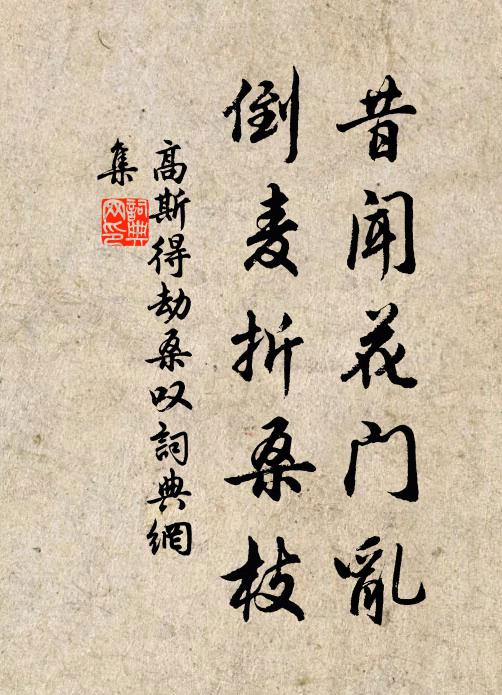 昔闻花门乱
倒麦折桑枝
高斯得劫桑叹詞典網
集
詞典
网印